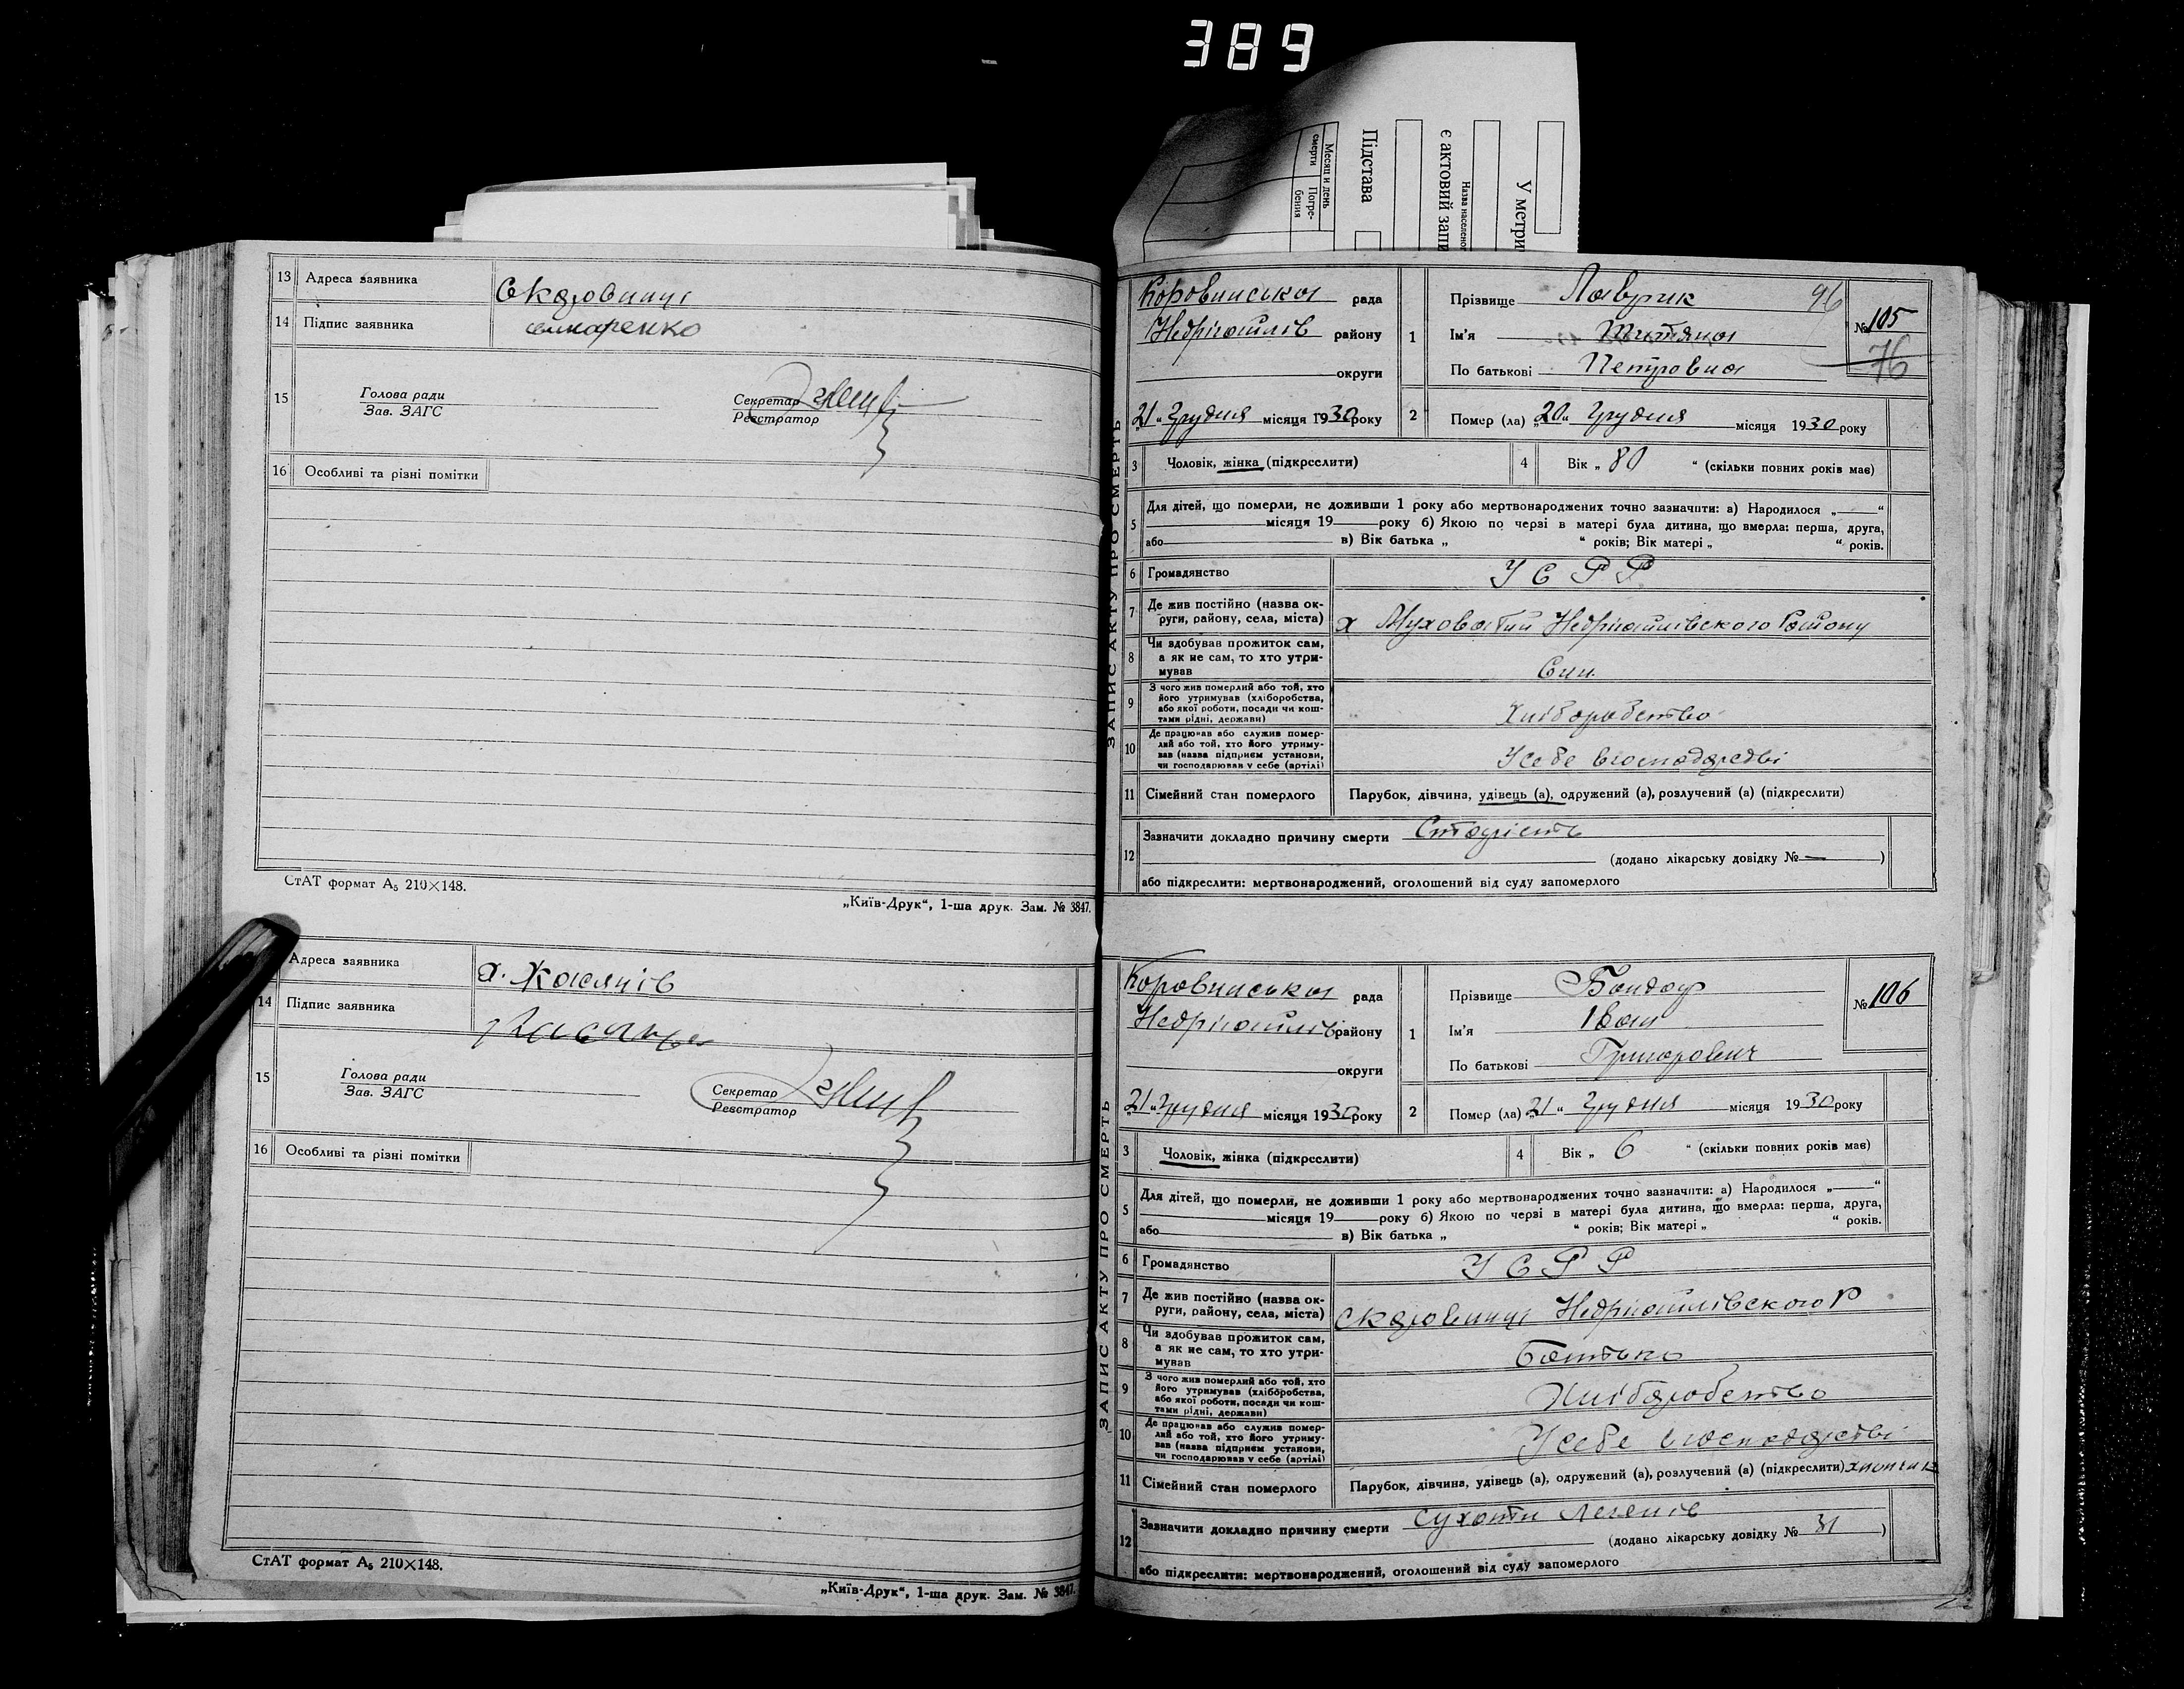 389
Месяц и день
смерти
Погре-
бения
Підстава
є актовий запи
Назва населеног
У метри
13 Адреса заявника
С Коровинці
14 Підпис заявника
15 Голова ради
Зав. ЗАГС
Секретар
Реєстратор
16 Особливі та різні помітки
СтАТ формат А₅ 210×148.
„Київ-Друк“, 1-ша друк. Зам. № 3847.
Адреса заявника
х. Косянів
14 Підпис заявника
15 Голова ради
Зав. ЗАГС
Секретар
Реєстратор
16 Особливі та різні помітки
СтАТ формат А₅ 210×148.
„Київ-Друк“, 1-ша друк. Зам. № 3847.
ЗАПИС АКТУ ПРО СМЕРТЬ
Коровинська рада
Недрігайлів району
округи
„21“ Грудня місяця 1930 року
1 Прізвище Лаврик 96
Ім'я Титяна
По батькові Петровна
№ 105
76
2 Помер (ла) „20“ Грудня місяця 1930 року
3 Чоловік, жінка (підкреслити)
4 Вік „ 80 “ (скільки повних років має)
5 Для дітей, що померли, не доживши 1 року або мертвонароджених точно зазначити: а) Народилося „—“
місяця 19—року б) Якою по черзі в матері була дитина, що вмерла: перша, друга,
або в) Вік батька „ “ років; Вік матері „ “ років.
6 Громадянство У С Р Р
7 Де жив постійно (назва ок-
руги, району, села, міста) х Муховатий Недрігайлівского Району
8 Чи здобував прожиток сам,
а як не сам, то хто утри-
мував Син.
9 З чого жив померлий або той, хто
його утримував (хліборобства,
або якої роботи, посади чи кош-
тами рідні, держави) Хліборобство
10 Де працював або служив помер-
лий або той, хто його утриму-
вав (назва підприєм установи,
чи господарював у себе (артілі) У себе в господарстві
11 Сімейний стан померлого Парубок, дівчина, удівець (а), одружений (а), розлучений (а) (підкреслити)
12 Зазначити докладно причину смерти Старість
(додано лікарську довідку № — )
або підкреслити: мертвонароджений, оголошений від суду запомерлого
ЗАПИС АКТУ ПРО СМЕРТЬ
Коровинська рада
Недрігайлів району
округи
„21“ Грудня місяця 1930 року
1 Прізвище Бондар
Ім'я Іван
По батькові Григорович
№ 106
2 Помер (ла) „21“ Грудня місяця 1930 року
3 Чоловік, жінка (підкреслити)
4 Вік „ 6 “ (скільки повних років має)
5 Для дітей, що померли, не доживши 1 року або мертвонароджених точно зазначити: а) Народилося „—“
місяця 19—року б) Якою по черзі в матері була дитина, що вмерла: перша, друга,
або в) Вік батька „ “ років; Вік матері „ “ років.
6 Громадянство У С Р Р
7 Де жив постійно (назва ок-
руги, району, села, міста) С Коровинці Недрігайлівского Р
8 Чи здобував прожиток сам,
а як не сам, то хто утри-
мував Батько
9 З чого жив померлий або той, хто
його утримував (хліборобства,
або якої роботи, посади чи кош-
тами рідні, держави) Хліборобство
10 Де працював або служив помер-
лий або той, хто його утриму-
вав (назва підприєм установи,
чи господарював у себе (артілі) У себе в господарстві
11 Сімейний стан померлого Парубок, дівчина, удівець (а), одружений (а), розлучений (а) (підкреслити) хлопчик
12 Зазначити докладно причину смерти Сухоти Легенів
(додано лікарську довідку № 31 )
або підкреслити: мертвонароджений, оголошений від суду запомерлого